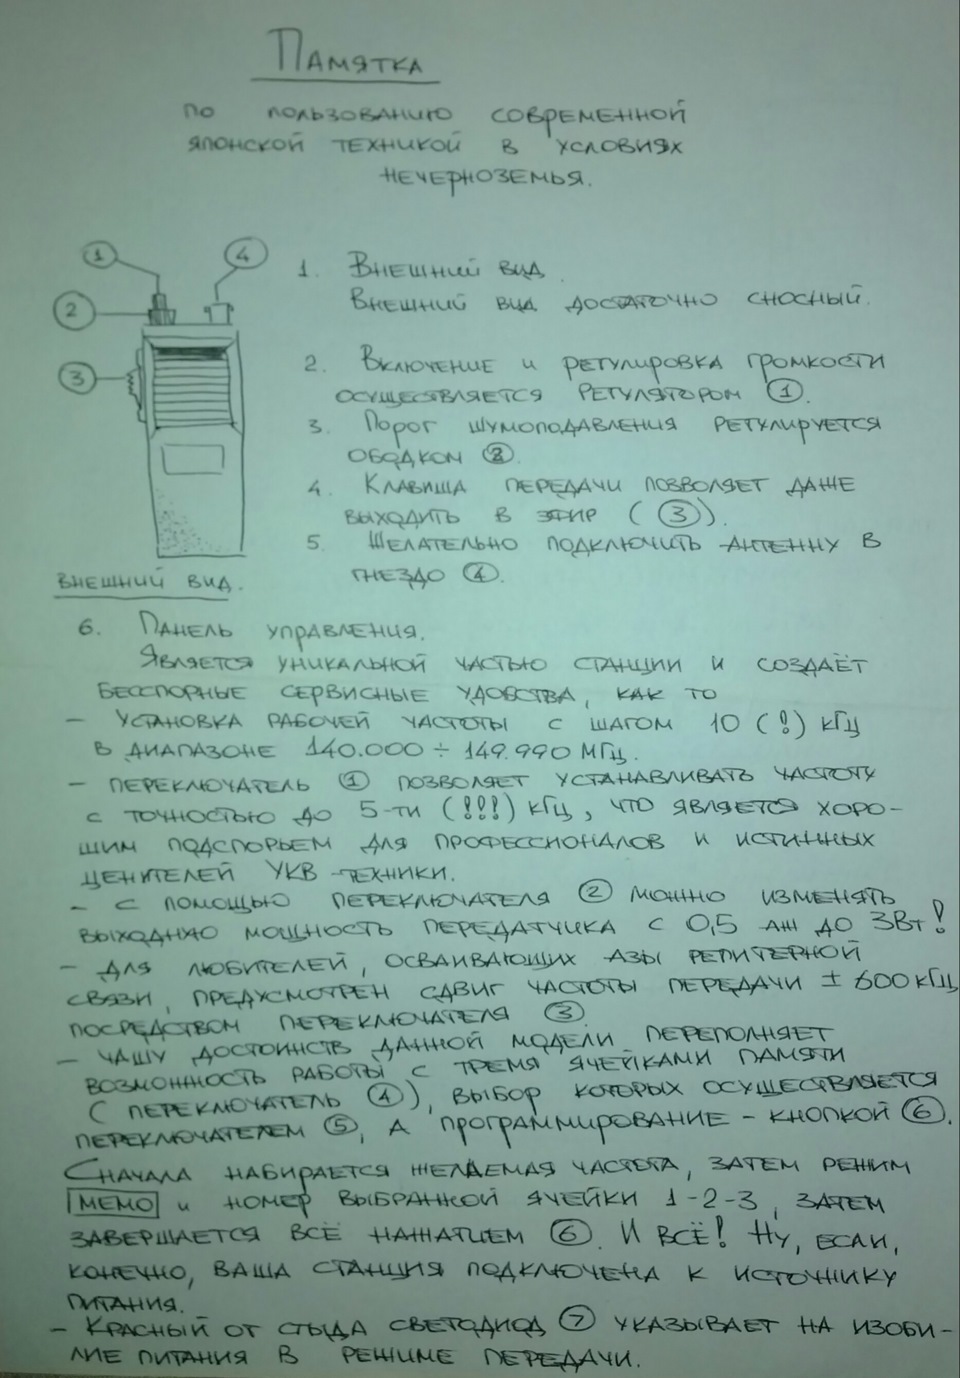 Памятка
по пользованию современной
японской техникой в условиях
нечерноземья.
1 4
2
3
Внешний вид.
1. Внешний вид.
Внешний вид достаточно сносный.
2. Включение и регулировка громкости
осуществляется регулятором 1.
3. Порог шумоподавления регулируется
ободком 2.
4. Клавиша передачи позволяет даже
выходить в эфир (3).
5. Желательно подключить антенну в
гнездо 4.
6. Панель управления.
Является уникальной частью станции и создаёт
бесспорные сервисные удобства, как то
- установка рабочей частоты с шагом 10 (!) кГц
в диапазоне 140.000 ÷ 149.990 МГц.
- переключатель 1 позволяет устанавливать частоту
с точностью до 5-ти (!!!) кГц, что является хоро-
шим подспорьем для профессионалов и истинных
ценителей УКВ-техники.
- с помощью переключателя 2 можно изменять
выходную мощность передатчика с 0,5 аж до 3Вт!
- для любителей, осваивающих азы репитерной
связи, предусмотрен сдвиг частоты передачи ± 600 кГц
посредством переключателя 3.
- чашу достоинств данной модели переполняет
возможность работы с тремя ячейками памяти
(переключатель 4), выбор которых осуществляется
переключателем 5, а программирование - кнопкой 6.
Сначала набирается желаемая частота, затем режим
MEMO и номер выбранной ячейки 1-2-3, затем
завершается всё нажатием 6. И всё! Ну, если,
конечно, ваша станция подключена к источнику
питания.
- Красный от стыда светодиод 7 указывает на изоби-
лие питания в режиме передачи.